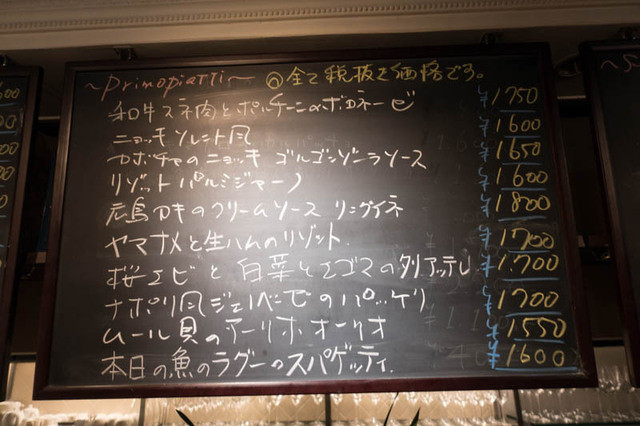 ~primopiatti~ 全て税抜き価格です。
和牛スネ肉とポルチーニのボロネーゼ ¥1750
ニョッキ ソレント風 ¥1600
カボチャのニョッキ ゴルゴンゾーラソース ¥1650
リゾット パルミジャーノ ¥1600
広島カキのクリームソース リングイネ ¥1800
ヤマナメと生ハムのリゾット. ¥1700
桜エビと白菜とエゴマの タリアッテレ ¥1.700
ナポリ風ジェノベーゼのパッケリ 1700
ムール貝のアーリオ オーリオ ¥1550
本日の魚のラグーのスパゲッティ. ¥1600
600